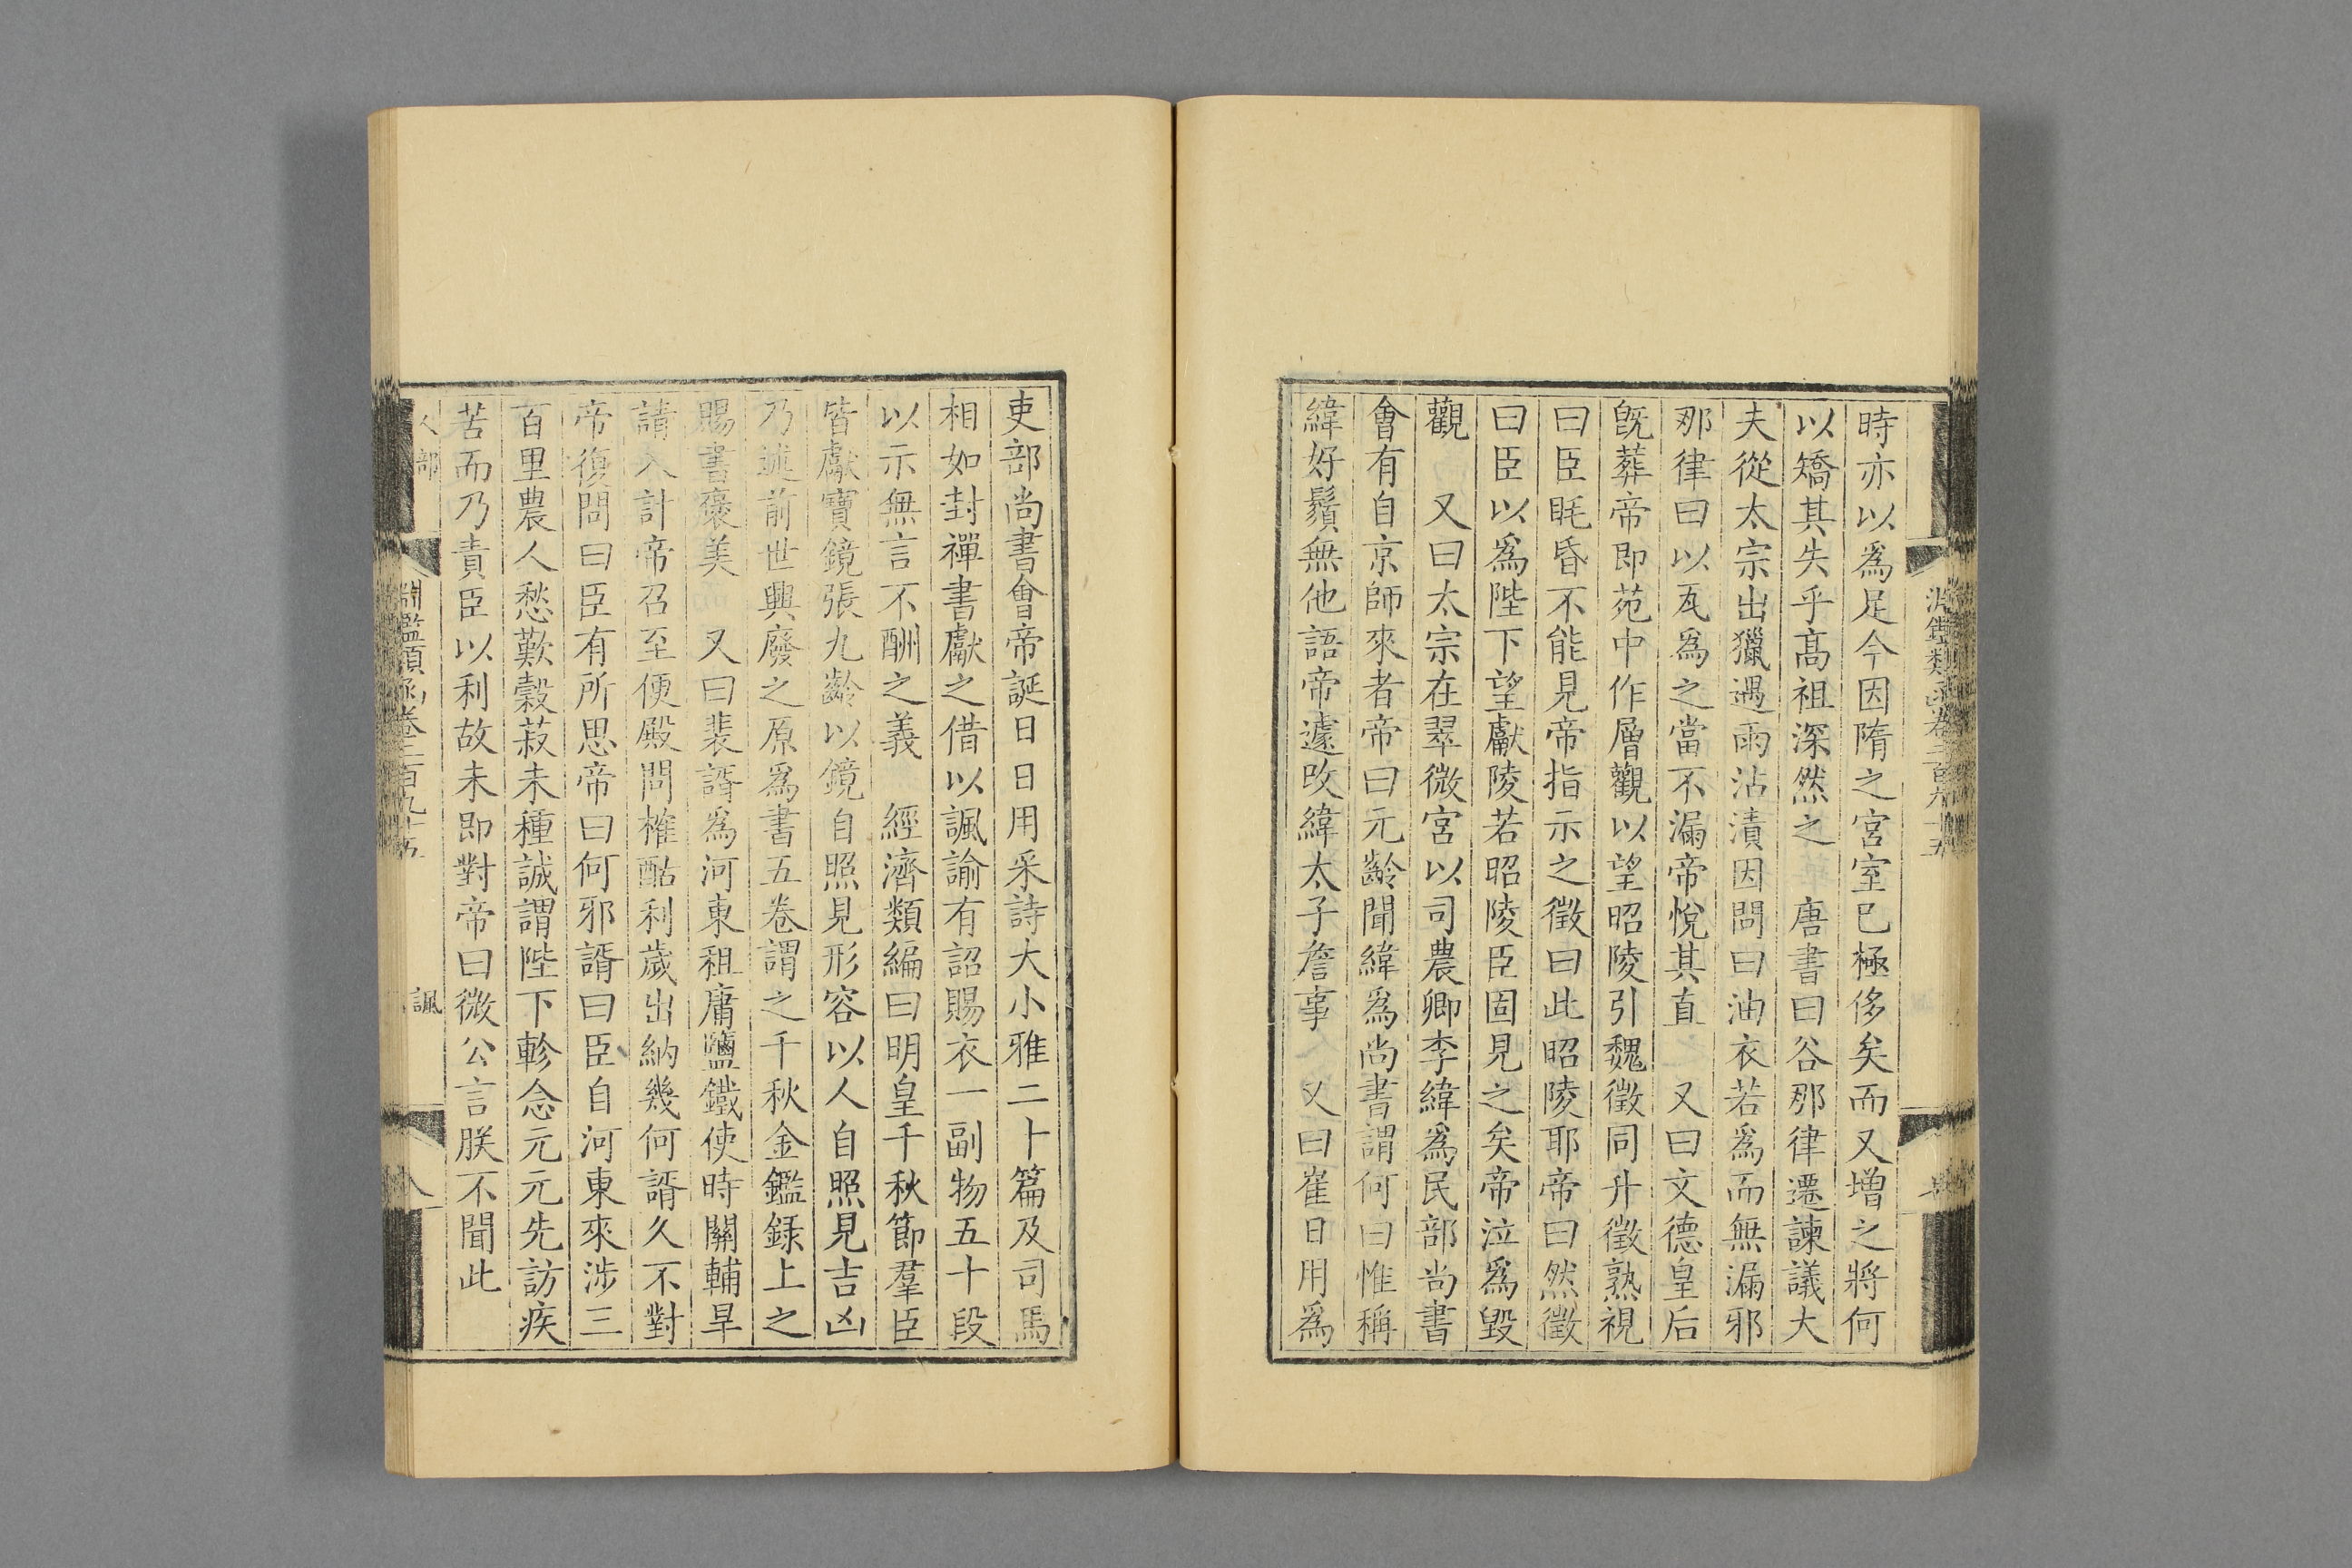 時亦以爲足今因隋之宮室已極侈矣而又增之將何
以矯其失乎高祖深然之　唐書曰谷那律遷諫議大
夫從太宗出獵遇雨沾漬因問曰油衣若爲而無漏邪
那律曰以瓦爲之當不漏帝悅其直　又曰文德皇后
旣葬帝即苑中作層觀以望昭陵引魏徵同升徵熟視
曰臣眊昏不能見帝指示之徵曰此昭陵耶帝曰然徵
曰臣以爲陛下望獻陵若昭陵臣固見之矣帝泣爲毀
觀　又曰太宗在翠微宮以司農卿李緯爲民部尚書
會有自京師來者帝曰元齡聞緯爲尚書謂何曰惟稱
緯好鬚無他語帝遽改緯太子詹事　又曰崔日用爲
吏部尚書會帝誕日日用采詩大小雅二十篇及司馬
相如封禪書獻之借以諷諭有詔賜衣一副物五十段
以示無言不酬之義　經濟類編曰明皇千秋節羣臣
皆獻寶鏡張九齡以鏡自照見形容以人自照見吉凶
乃述前世興廢之原爲書五卷謂之千秋金鑑錄上之
賜書褒美　又曰裴諝爲河東租庸鹽鐵使時關輔旱
請入計帝召至便殿問榷酤利歲出納幾何諝久不對
帝復問曰臣有所思帝曰何邪諝曰臣自河東來涉三
百里農人愁歎穀菽未種誠謂陛下軫念元元先訪疾
苦而乃責臣以利故未即對帝曰微公言朕不聞此
人部　淵鑑類函卷二百九十五　諷　八